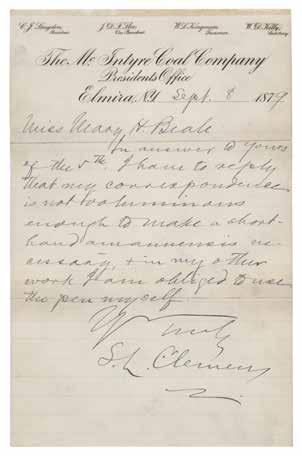 C. J. Langdon, J. D. F. Slee, W. D. Kingman, W. D. Kelly,
President Vice President Treasurer Secretary
The Mc Intyre Coal Company
Presidents Office
Elmira, N.Y. Sept. 8 1879
Miss Mary H. Beale
In answer to yours
of the 5th. I have to reply
that my correspondence
is not voluminous
enough to make a short-
hand amanuensis ne-
cessary, + in my other
work I am obliged to use
the pen myself.
Truly
S. L. Clemens